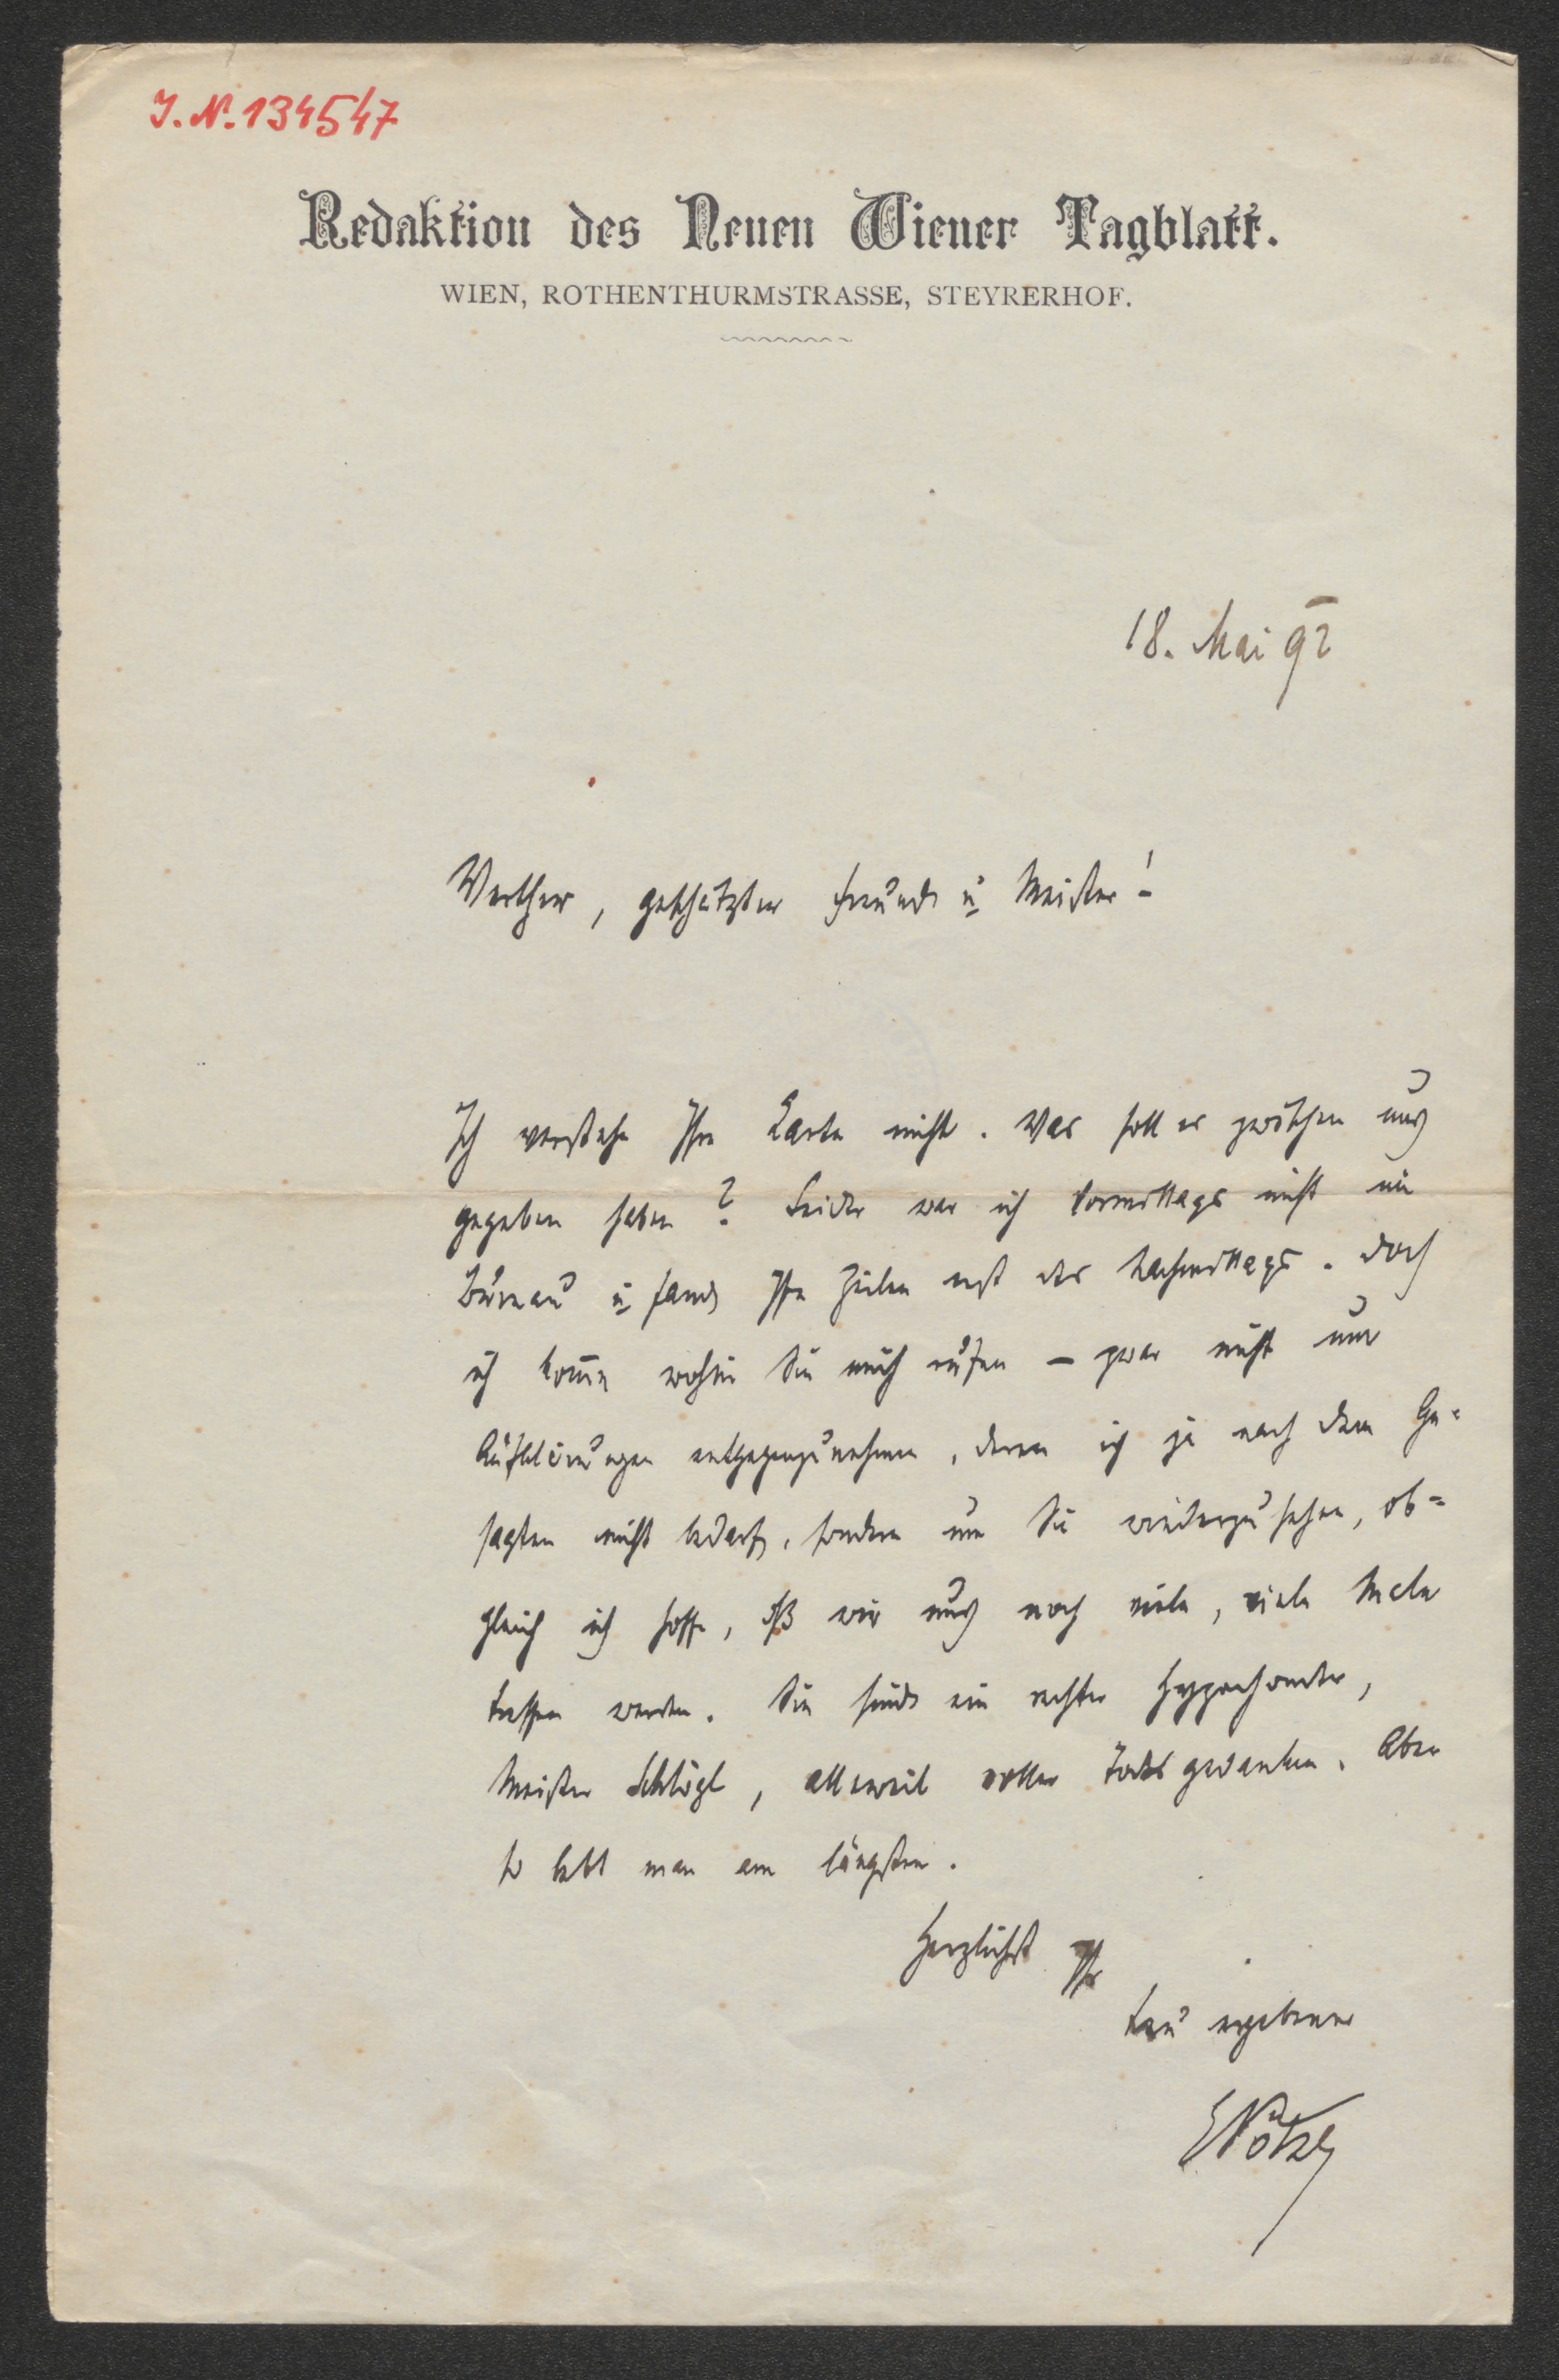 I. N. 134547
Redaktion des Neuen Wiener Tagblatt.
WIEN, ROTHENTHURMSTRASSE, STEYRERHOF.
18. Mai 92
Werther, geschätzter Freund u Meister!
Ich verstehe Ihre Karte nicht. Was soll es zwischen uns
gegeben haben? Leider war ich Vormittags nicht im
Bureau u fand Ihre Zeilen erst des Nachmittags. Doch
ich kom̄e wohin Sie mich rufen – zwar nicht um
Aufklärungen entgegenzunehmen, deren ich ja nach dem Ge-
sagten nicht bedarf, sondern um Sie wiederzusehen, ob-
gleich ich hoffe, dß wir uns noch viele, viele Male
treffen werden. Sie sind ein rechter Hypochonder,
Meister Schlögl, alleweil voller Todesgedanken. Aber
so lebt man am längsten.
Herzlichst Ihr
treu ergebener
EPötzl